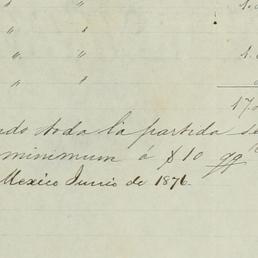 " "
" "
" "
" "
17.
toda la partida se
minimum á $10 qq
Mexico Junio de 1876.